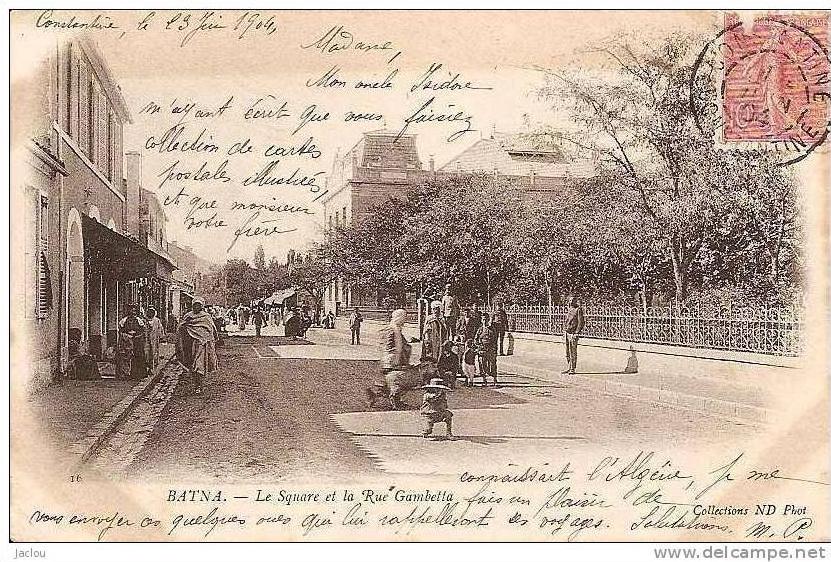 Constantine, le 23 Juin 1904,
Madame,
Mon oncle Isidore
m'ayant écrit que vous faisiez
collection de cartes
postales illustrées,
et que monsieur
votre frère
connaissait l'Algérie, je me
fais un plaisir de
vous envoyer ces quelques vues qui lui rappelleront ses voyages. Salutations. M. P.
16
BATNA. — Le Square et la Rue Gambetta
Collections ND Phot
http://jaclou.delcampe.net
Jaclou